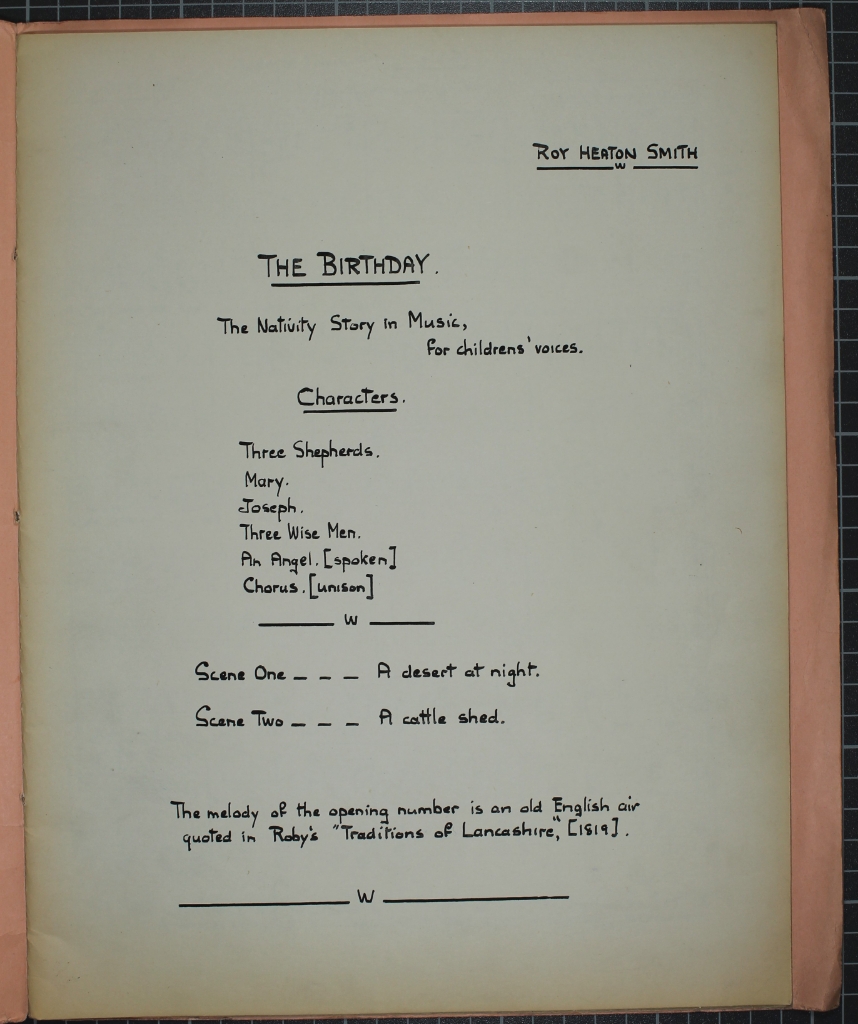 ROY HEATON SMITH
W
THE BIRTHDAY.
The Nativity Story in Music,
for childrens' voices.
Characters.
Three Shepherds.
Mary.
Joseph.
Three Wise Men.
An Angel. [spoken]
Chorus. [unison]
W
Scene One _ _ _ A desert at night.
Scene Two _ _ _ A cattle shed.
The melody of the opening number is an old English air
quoted in Roby's "Traditions of Lancashire", [1819].
W